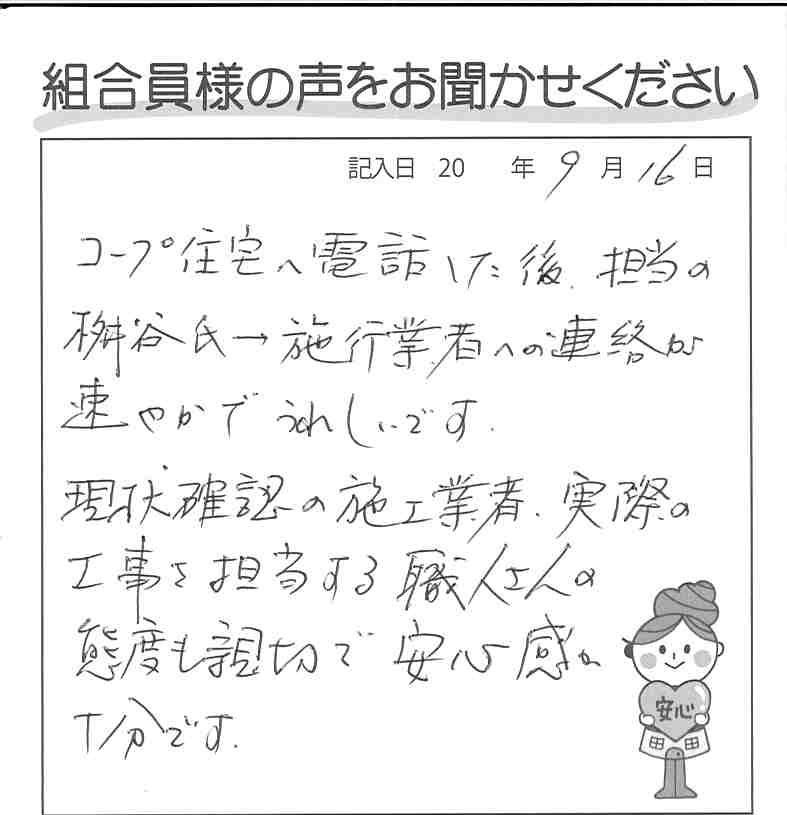 組合員様の声をお聞かせください
記入日 20 年 9月 16日
コープ住宅へ電話した後、担当の
桝谷氏→施行業者への連絡が
速やかでうれしいです.
現状確認の施工業者、実際の
工事を担当する職人さんの
態度も親切で安心感が
十分です.
安心